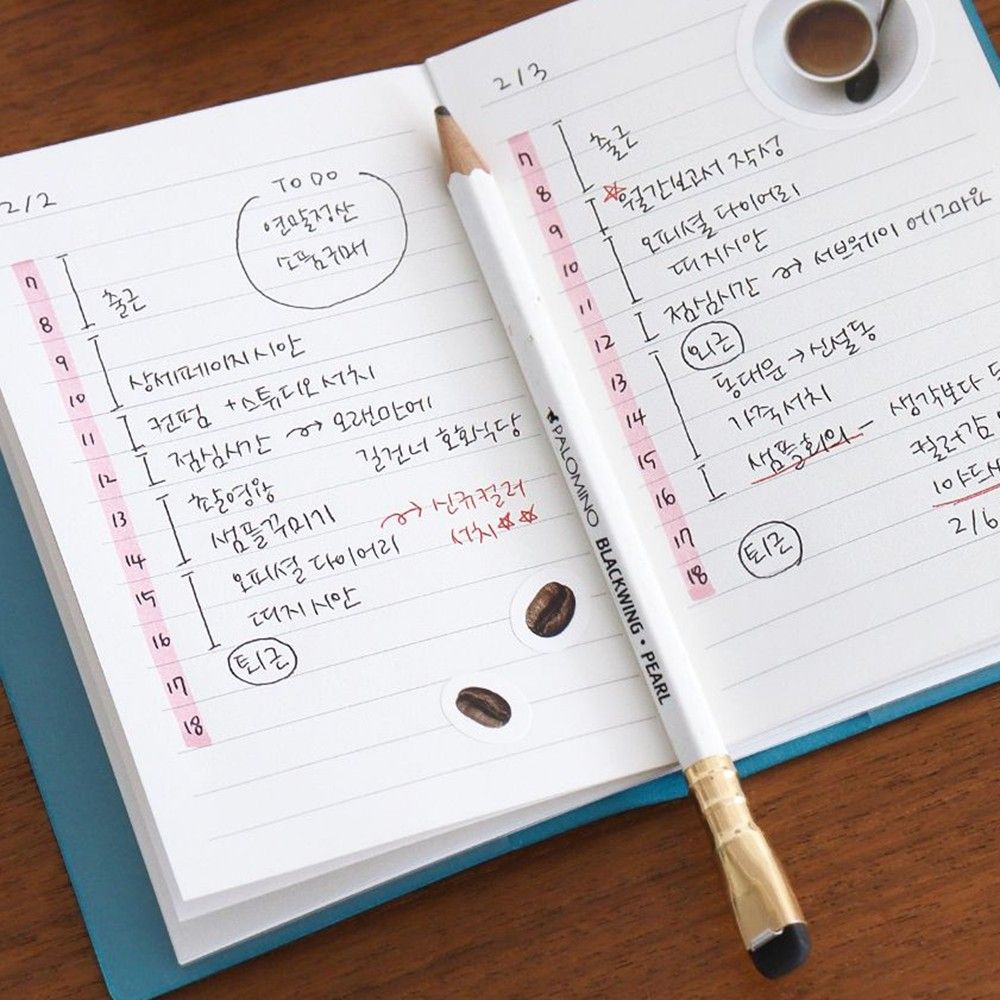 2/2
TO DO
연말정산
소품구매
7
8
출근
9
10
상세페이지 시안
11
컨펌 +스튜디오 서치
12
점심시간 → 오랜만에
길건너 호화식당
13
14
촬영왕
샘플꾸미기 → 신규컬러
서치☆☆
15
16
오피셜 다이어리
띠지 시안
퇴근
17
18
2/3
7
8
출근
☆월간보고서 작성
9
10
11
오피셜 다이어리
띠지시안
12
점심시간 → 서브웨이 에그마요
외근
13
14
15
동대문 → 신설동
가죽서치
생각보다
16
샘플회의 -
컬러감
17
18
퇴근
2/6
PALOMINO BLACKWING • PEARL